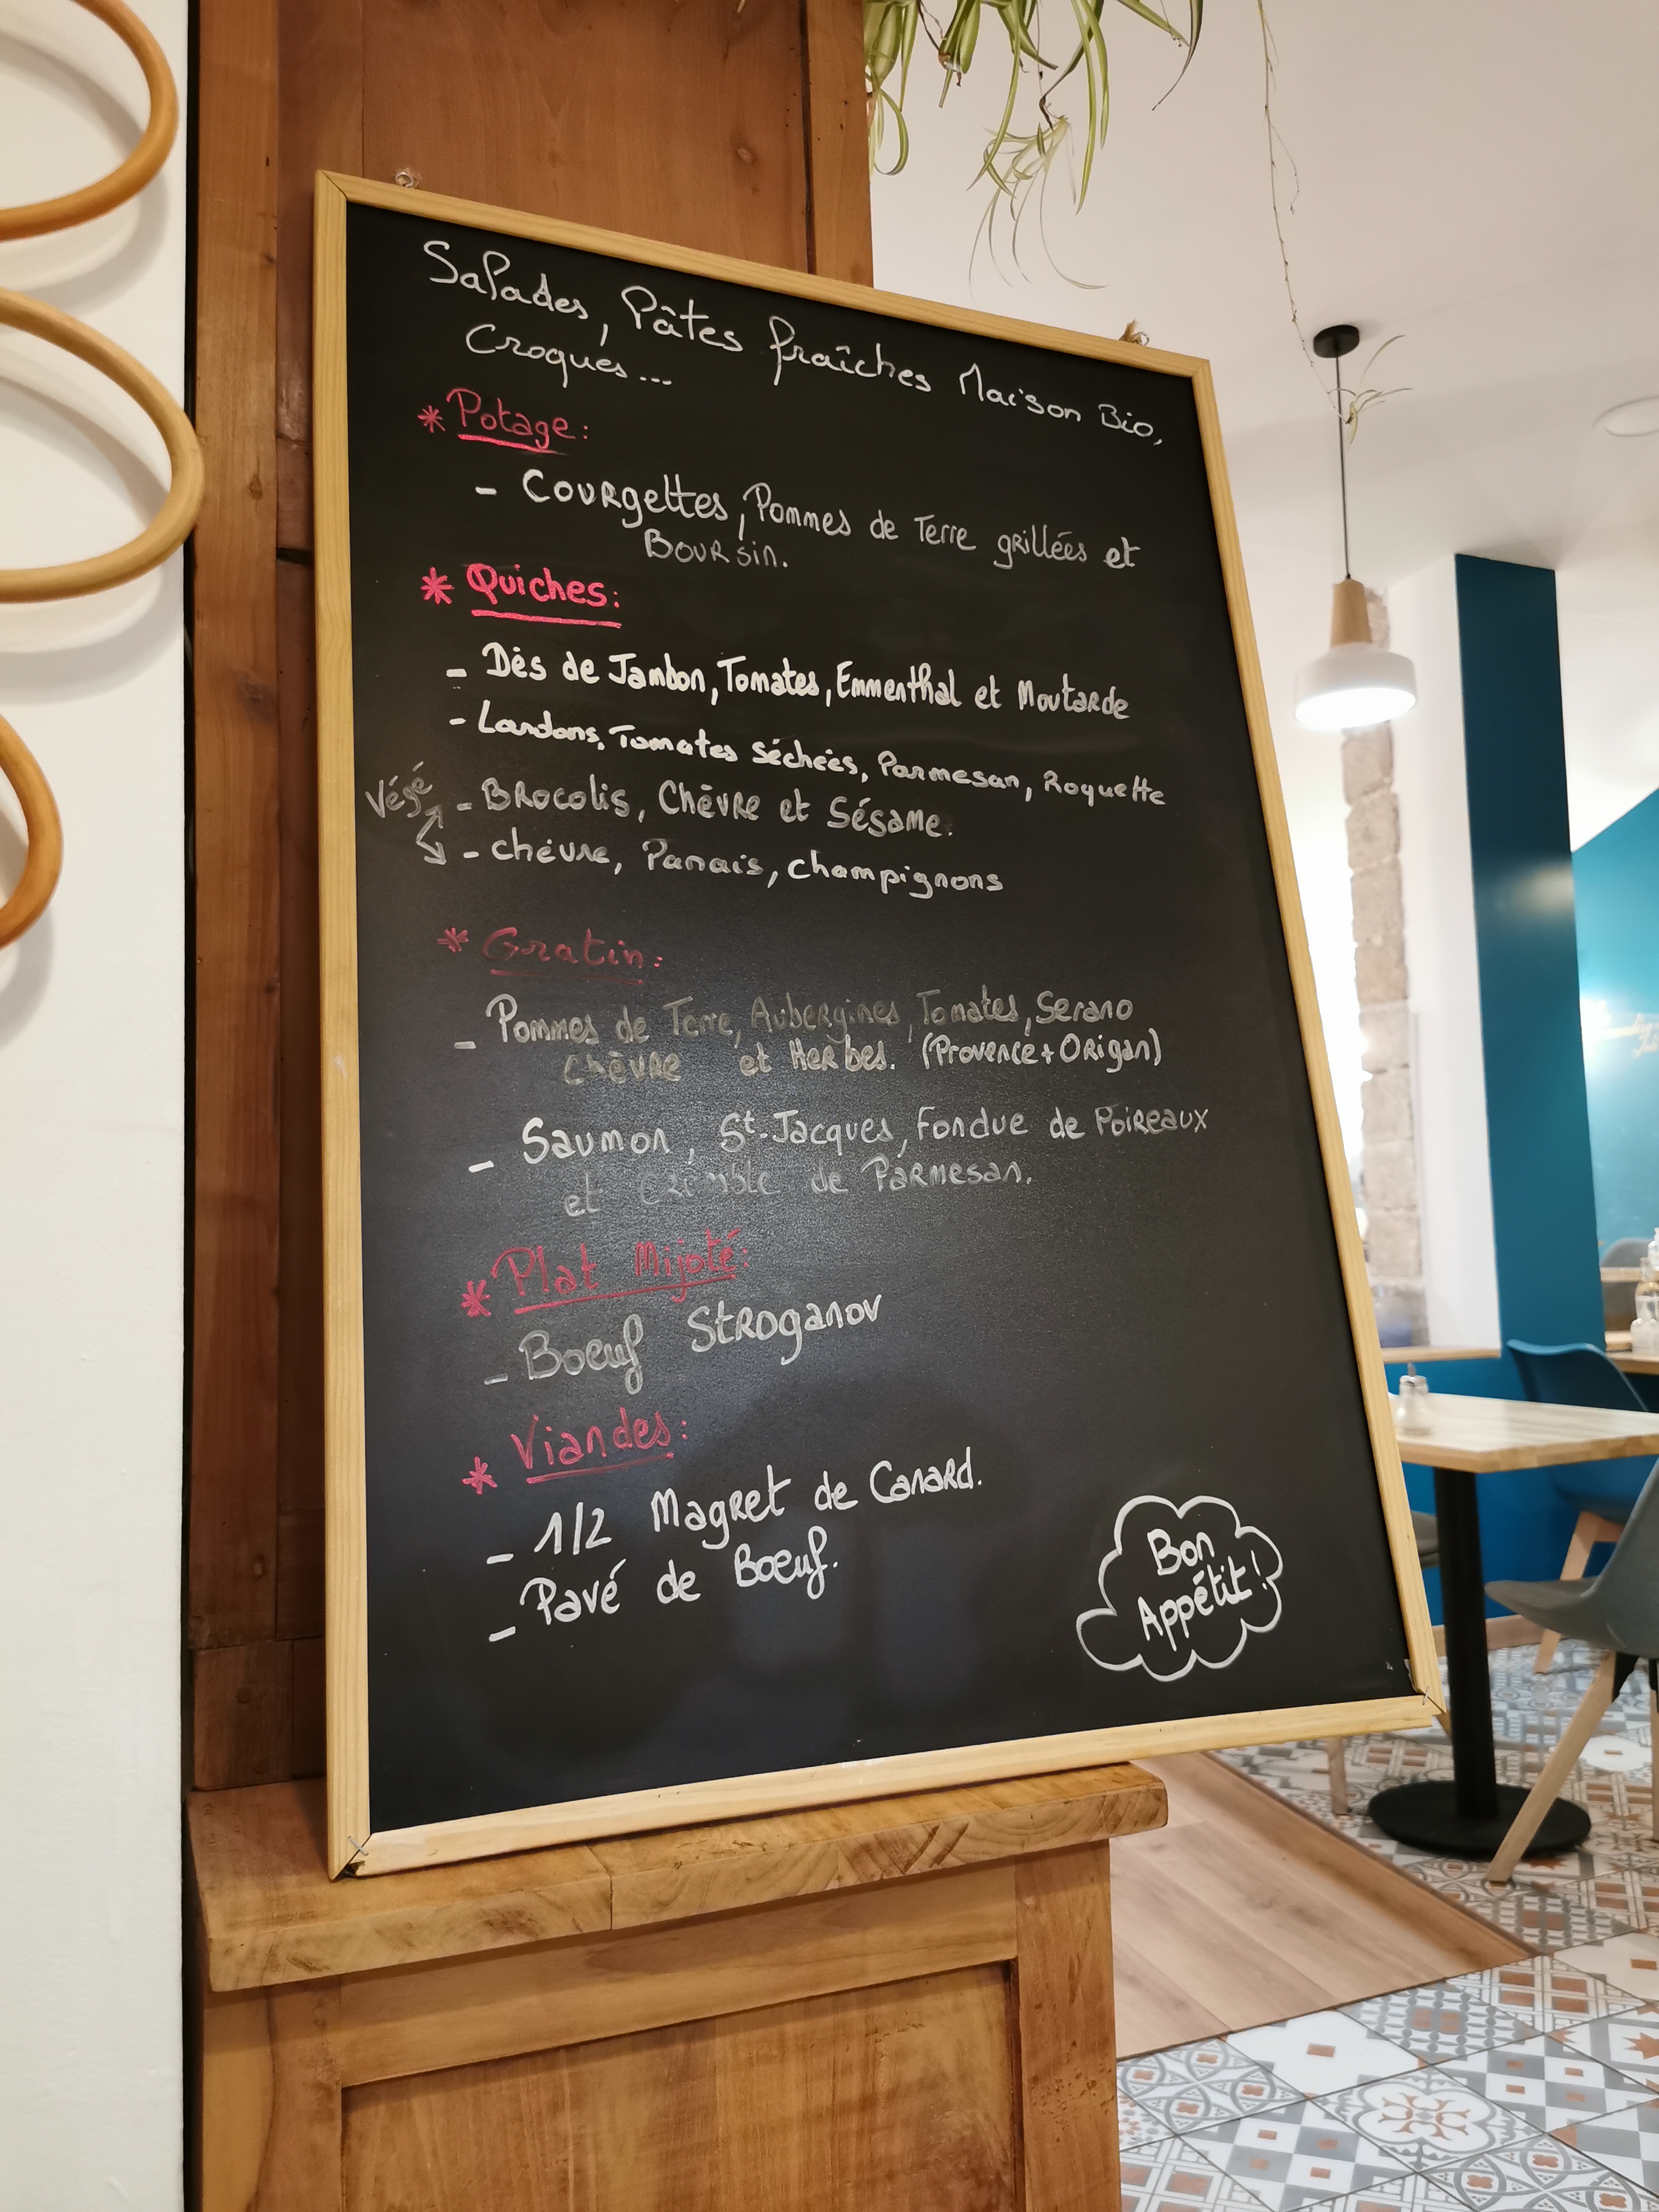 Salades, Pâtes fraîches Maison Bio,
Croqués...
* Potage:
- Courgettes, Pommes de Terre grillées et
Boursin.
* Quiches:
- Dés de Jambon, Tomates, Emmenthal et Moutarde
- Lardons, Tomates Séchées, Parmesan, Roquette
Végé
- Brocolis, Chèvre et Sésame.
- chèvre, Panais, champignons
* Gratin:
- Pommes de Terre, Aubergines, Tomates, Serano
Chèvre et Herbes. (Provence + Origan)
- Saumon, St-Jacques, Fondue de Poireaux
et de Parmesan.
* Plat Mijoté:
- Boeuf Stroganov
* Viandes:
- 1/2 Magret de Canard.
- Pavé de Boeuf.
Bon
Appétit!